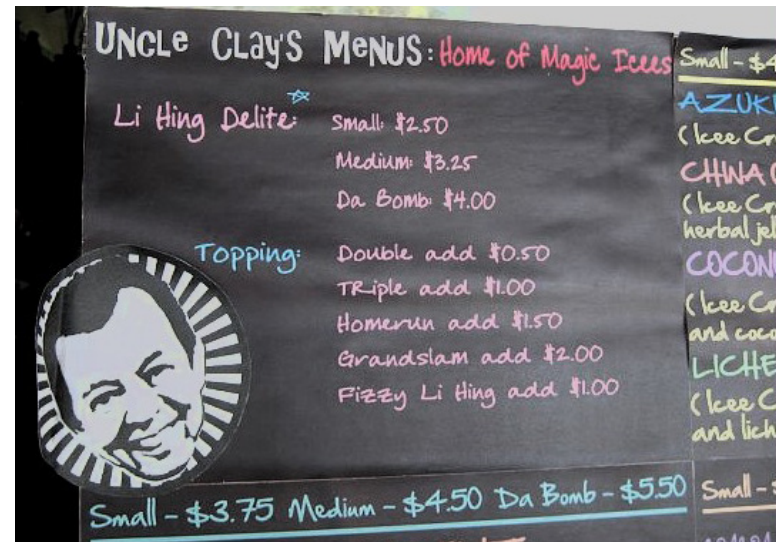 UNCLe CLaY'S MeNUS: Home of Magic Icees
Li Hing Delite:
Small: $2.50
Medium: $3.25
Da Bomb: $4.00
Topping:
Double add $0.50
TRiple add $1.00
Homerun add $1.50
Grandslam add $2.00
Fizzy Li Hing add $1.00
Small - $3.75 Medium - $4.50 Da Bomb - $5.50
Small - $4
AZUKI
(Icee Cr
CHINA
(Icee Cr
herbal jel
COCONU
(Icee Cr
and coco
LICHE
(Icee C
and lich
Small -